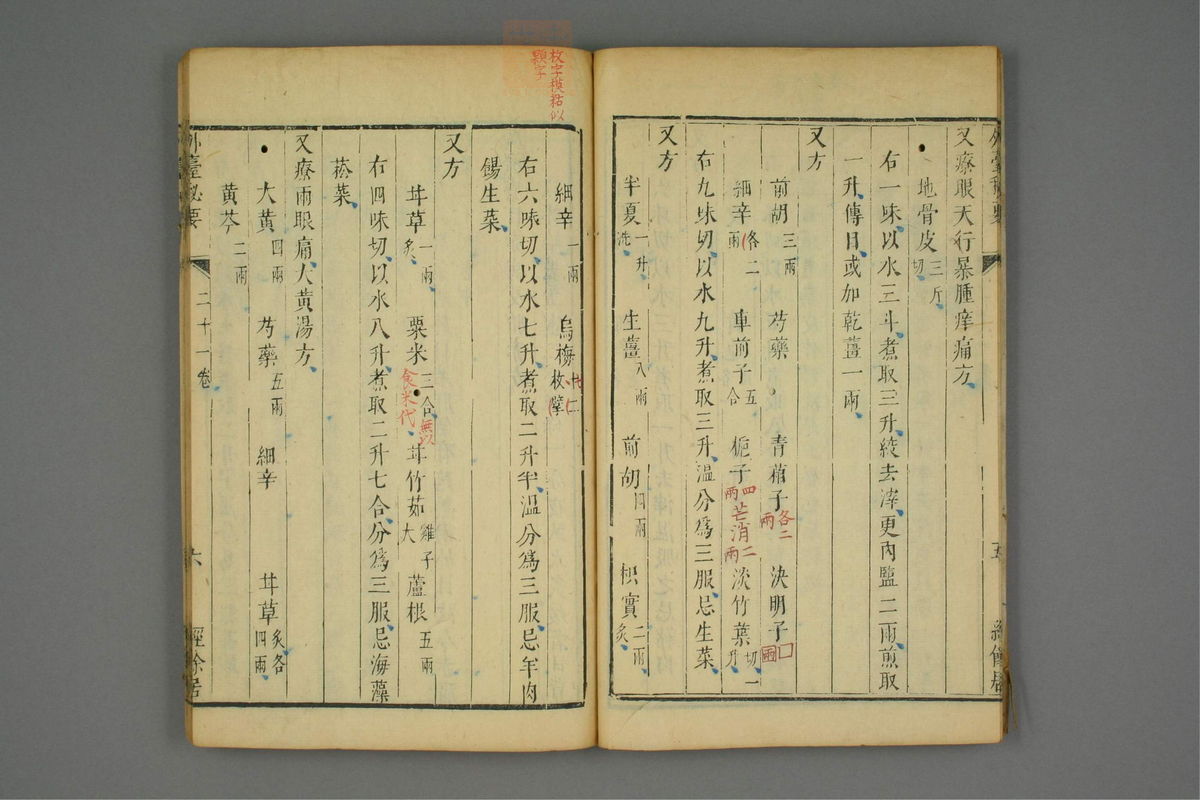 又療眼天行暴腫痒痛方
地骨皮三斤切
右一味以水三斗煮取三升絞去滓更內鹽二兩煎取
一升傅目或加乾薑一兩
又方
前胡三兩 芍藥 青葙子各二兩 決明子
細辛各二兩 車前子五合 梔子四兩 芒消二兩 淡竹葉切一升
右九味切以水九升煮取三升溫分爲三服忌生菜
又方
半夏一升洗 生薑八兩 前胡四兩 枳實二兩炙
枚字模糊似
顆字
細辛一兩 烏梅十二枚擘
右六味切以水七升煮取二升半溫分爲三服忌羊肉
餳生菜
又方
甘草一兩炙 粟米三合 無以食米代 甘竹茹雞子大 蘆根五兩
右四味切以水八升煮取二升七合分爲三服忌海藻
菘菜
又療兩眼痛大黃湯方
大黃四兩 芍藥五兩 細辛 甘草炙各四兩
黃芩二兩
外臺秘要 二十一卷 六 經餘居